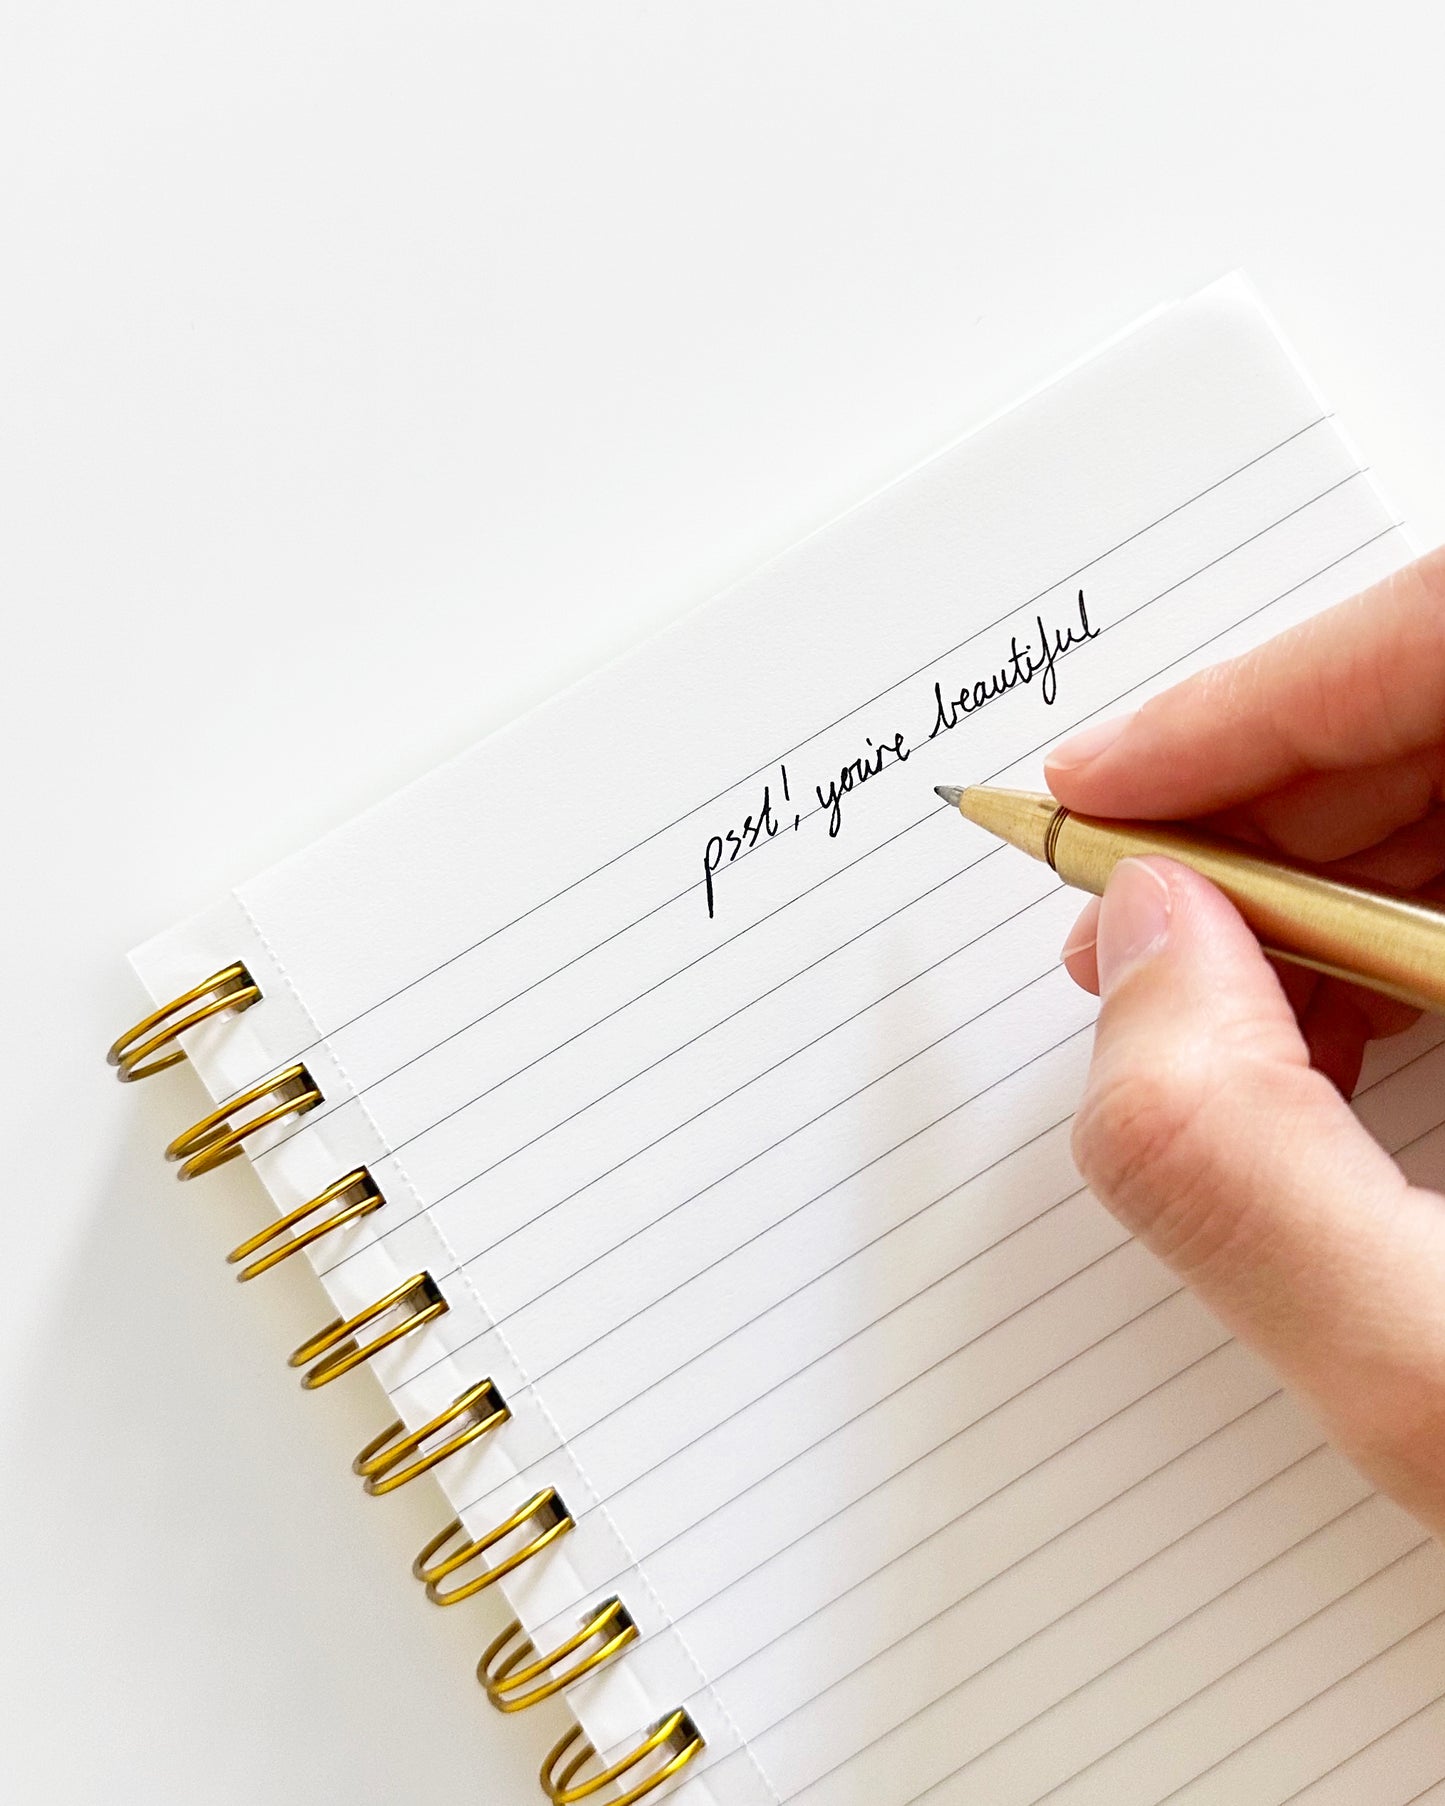 psst!, you're beautiful